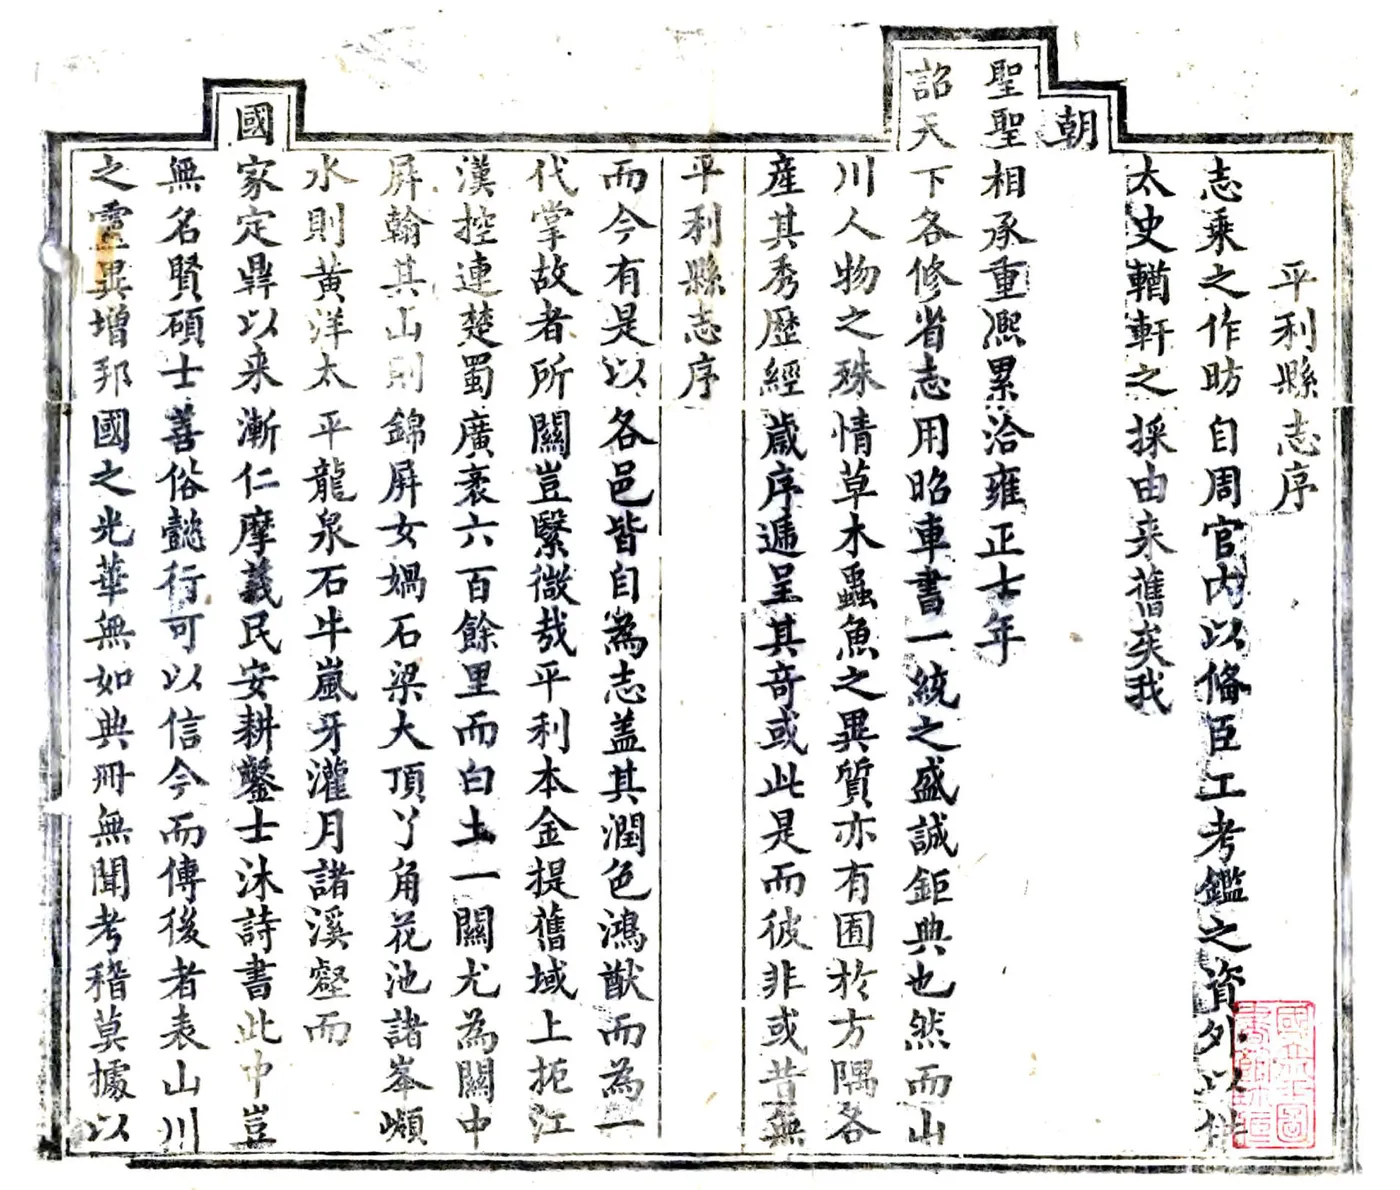 平利縣志序
志乘之作昉自周官内以備臣工考鑑之資外以供
太史輶軒之採由来舊矣我
朝
聖聖相承重凞累洽雍正士年
詔天下各修省志用昭車書一統之盛誠鉅典也然而山
川人物之殊情草木蟲魚之異質亦有囿於方隅各
產其秀歷經歲序遞呈其竒或此是而彼非或昔無
平利縣志序
而今有是以各邑皆自為志盖其潤色鴻猷而為一
代掌故者所關豈緊微哉平利本金提舊域上扼江
漢控連楚蜀廣袤六百餘里而白土一關尤為關中
屏翰其山則錦屏女媧石梁大頂丫角花池諸峯巘
水則黄洋太平龍泉石牛嵐牙灌月諸溪壑而
國家定鼎以来漸仁摩義民安耕鑿士沐詩書此中豈
無名賢碩士善俗懿行可以信今而傳後者表山川
之靈異增邦國之光華無如典冊無聞考稽莫據以
國立北平圖書館收藏